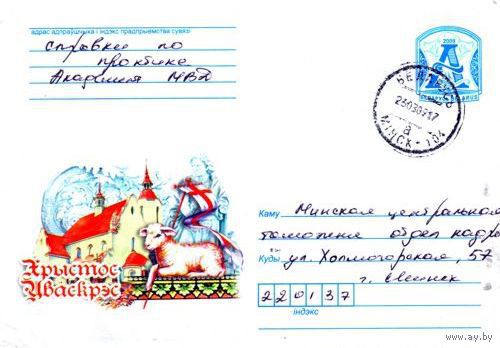 адрас адпраўшчыка і індэкс прадпрыемства сувязі
справки по
практике
Академия МВД
2009
А
БЕЛАРУСЬ BELARUS
БЕЛАРУСЬ
260309 17
а
МІНСК - 104
Хрыстос
Уваскрэс
Каму Минская центральная
таможня отдел кадров
Куды ул. Холмогорская, 57
г. Минск
220137
індэкс
www.ay.by